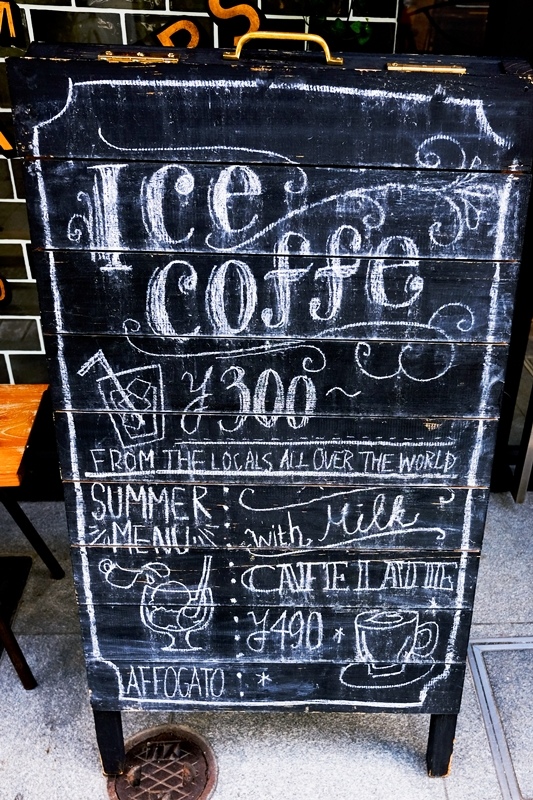 Ice
Coffe
¥300~
FROM THE LOCALS ALL OVER THE WORLD
SUMMER
MENU
with Milk
CAFFE LATTE
¥490 *
AFFOGATO *
ガス